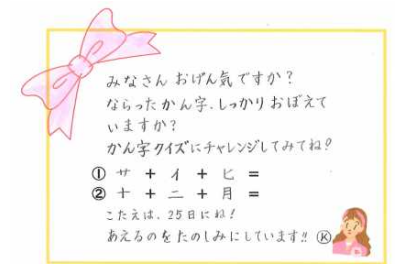 みなさん おげん気ですか?
ならったかん字、しっかりおぼえて
いますか?
かん字クイズにチャレンジしてみてね?
① サ + イ + ヒ =
② 十 + 二 + 月 =
こたえは、25日にね!
あえるのをたのしみにしています!! Ⓚ